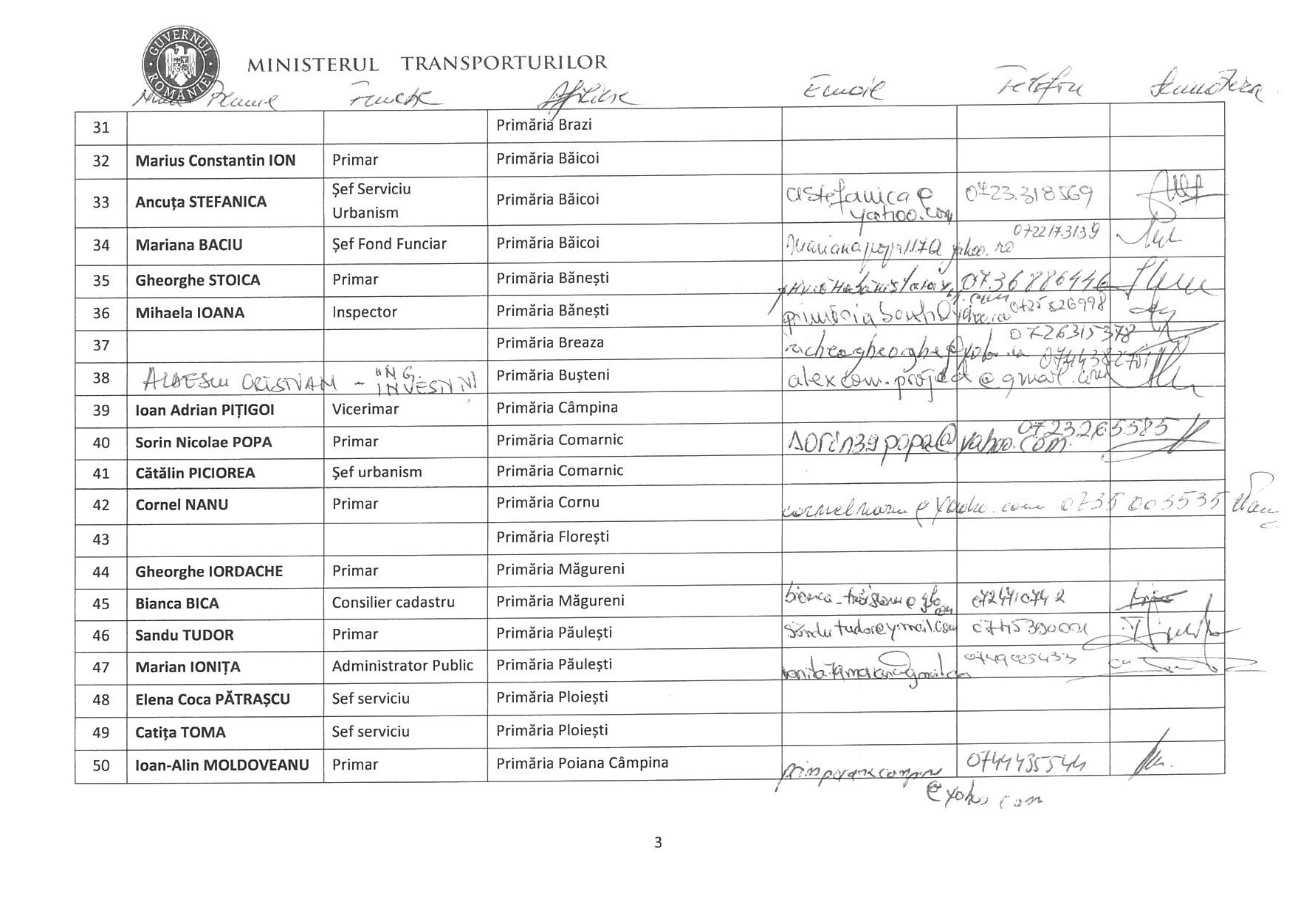 GUVERNUL ROMÂNIEI
MINISTERUL TRANSPORTURILOR
Nume Prenume Functie Afiliere Email Telefon Semnatura
31 Primăria Brazi
32 Marius Constantin ION Primar Primăria Băicoi
33 Ancuța STEFANICA Șef Serviciu Urbanism Primăria Băicoi astefanica@yahoo.com 0723.318569
34 Mariana BACIU Șef Fond Funciar Primăria Băicoi 0722173139
35 Gheorghe STOICA Primar Primăria Bănești 0736886446
36 Mihaela IOANA Inspector Primăria Bănești 0725826998
37 Primăria Breaza 0726315378
38 ALBESCU CRISTIAN - ING. INVESTIȚII Primăria Bușteni alexcom.project@gmail.com
39 Ioan Adrian PIȚIGOI Vicerimar Primăria Câmpina
40 Sorin Nicolae POPA Primar Primăria Comarnic sorin39popa@yahoo.com 0723265585
41 Cătălin PICIOREA Șef urbanism Primăria Comarnic
42 Cornel NANU Primar Primăria Cornu cornelnanu@yahoo.com 0735003535
43 Primăria Florești
44 Gheorghe IORDACHE Primar Primăria Măgureni
45 Bianca BICA Consilier cadastru Primăria Măgureni
46 Sandu TUDOR Primar Primăria Păulești sandutudor@ymail.com 0745390001
47 Marian IONIȚA Administrator Public Primăria Păulești
48 Elena Coca PĂTRAȘCU Sef serviciu Primăria Ploiești
49 Catița TOMA Sef serviciu Primăria Ploiești
50 Ioan-Alin MOLDOVEANU Primar Primăria Poiana Câmpina 0744435544
3